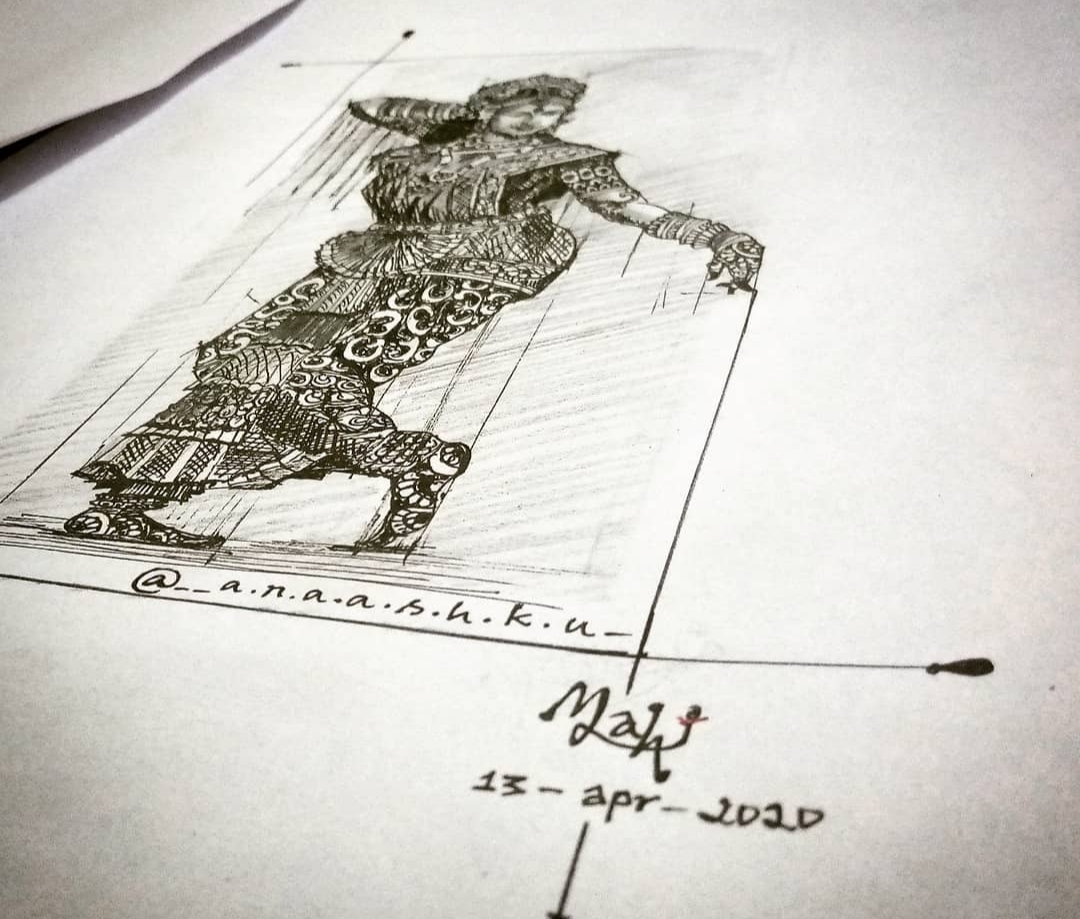 @__a.n.a.a.s.h.k.u_
Mahi
13-apr-2020